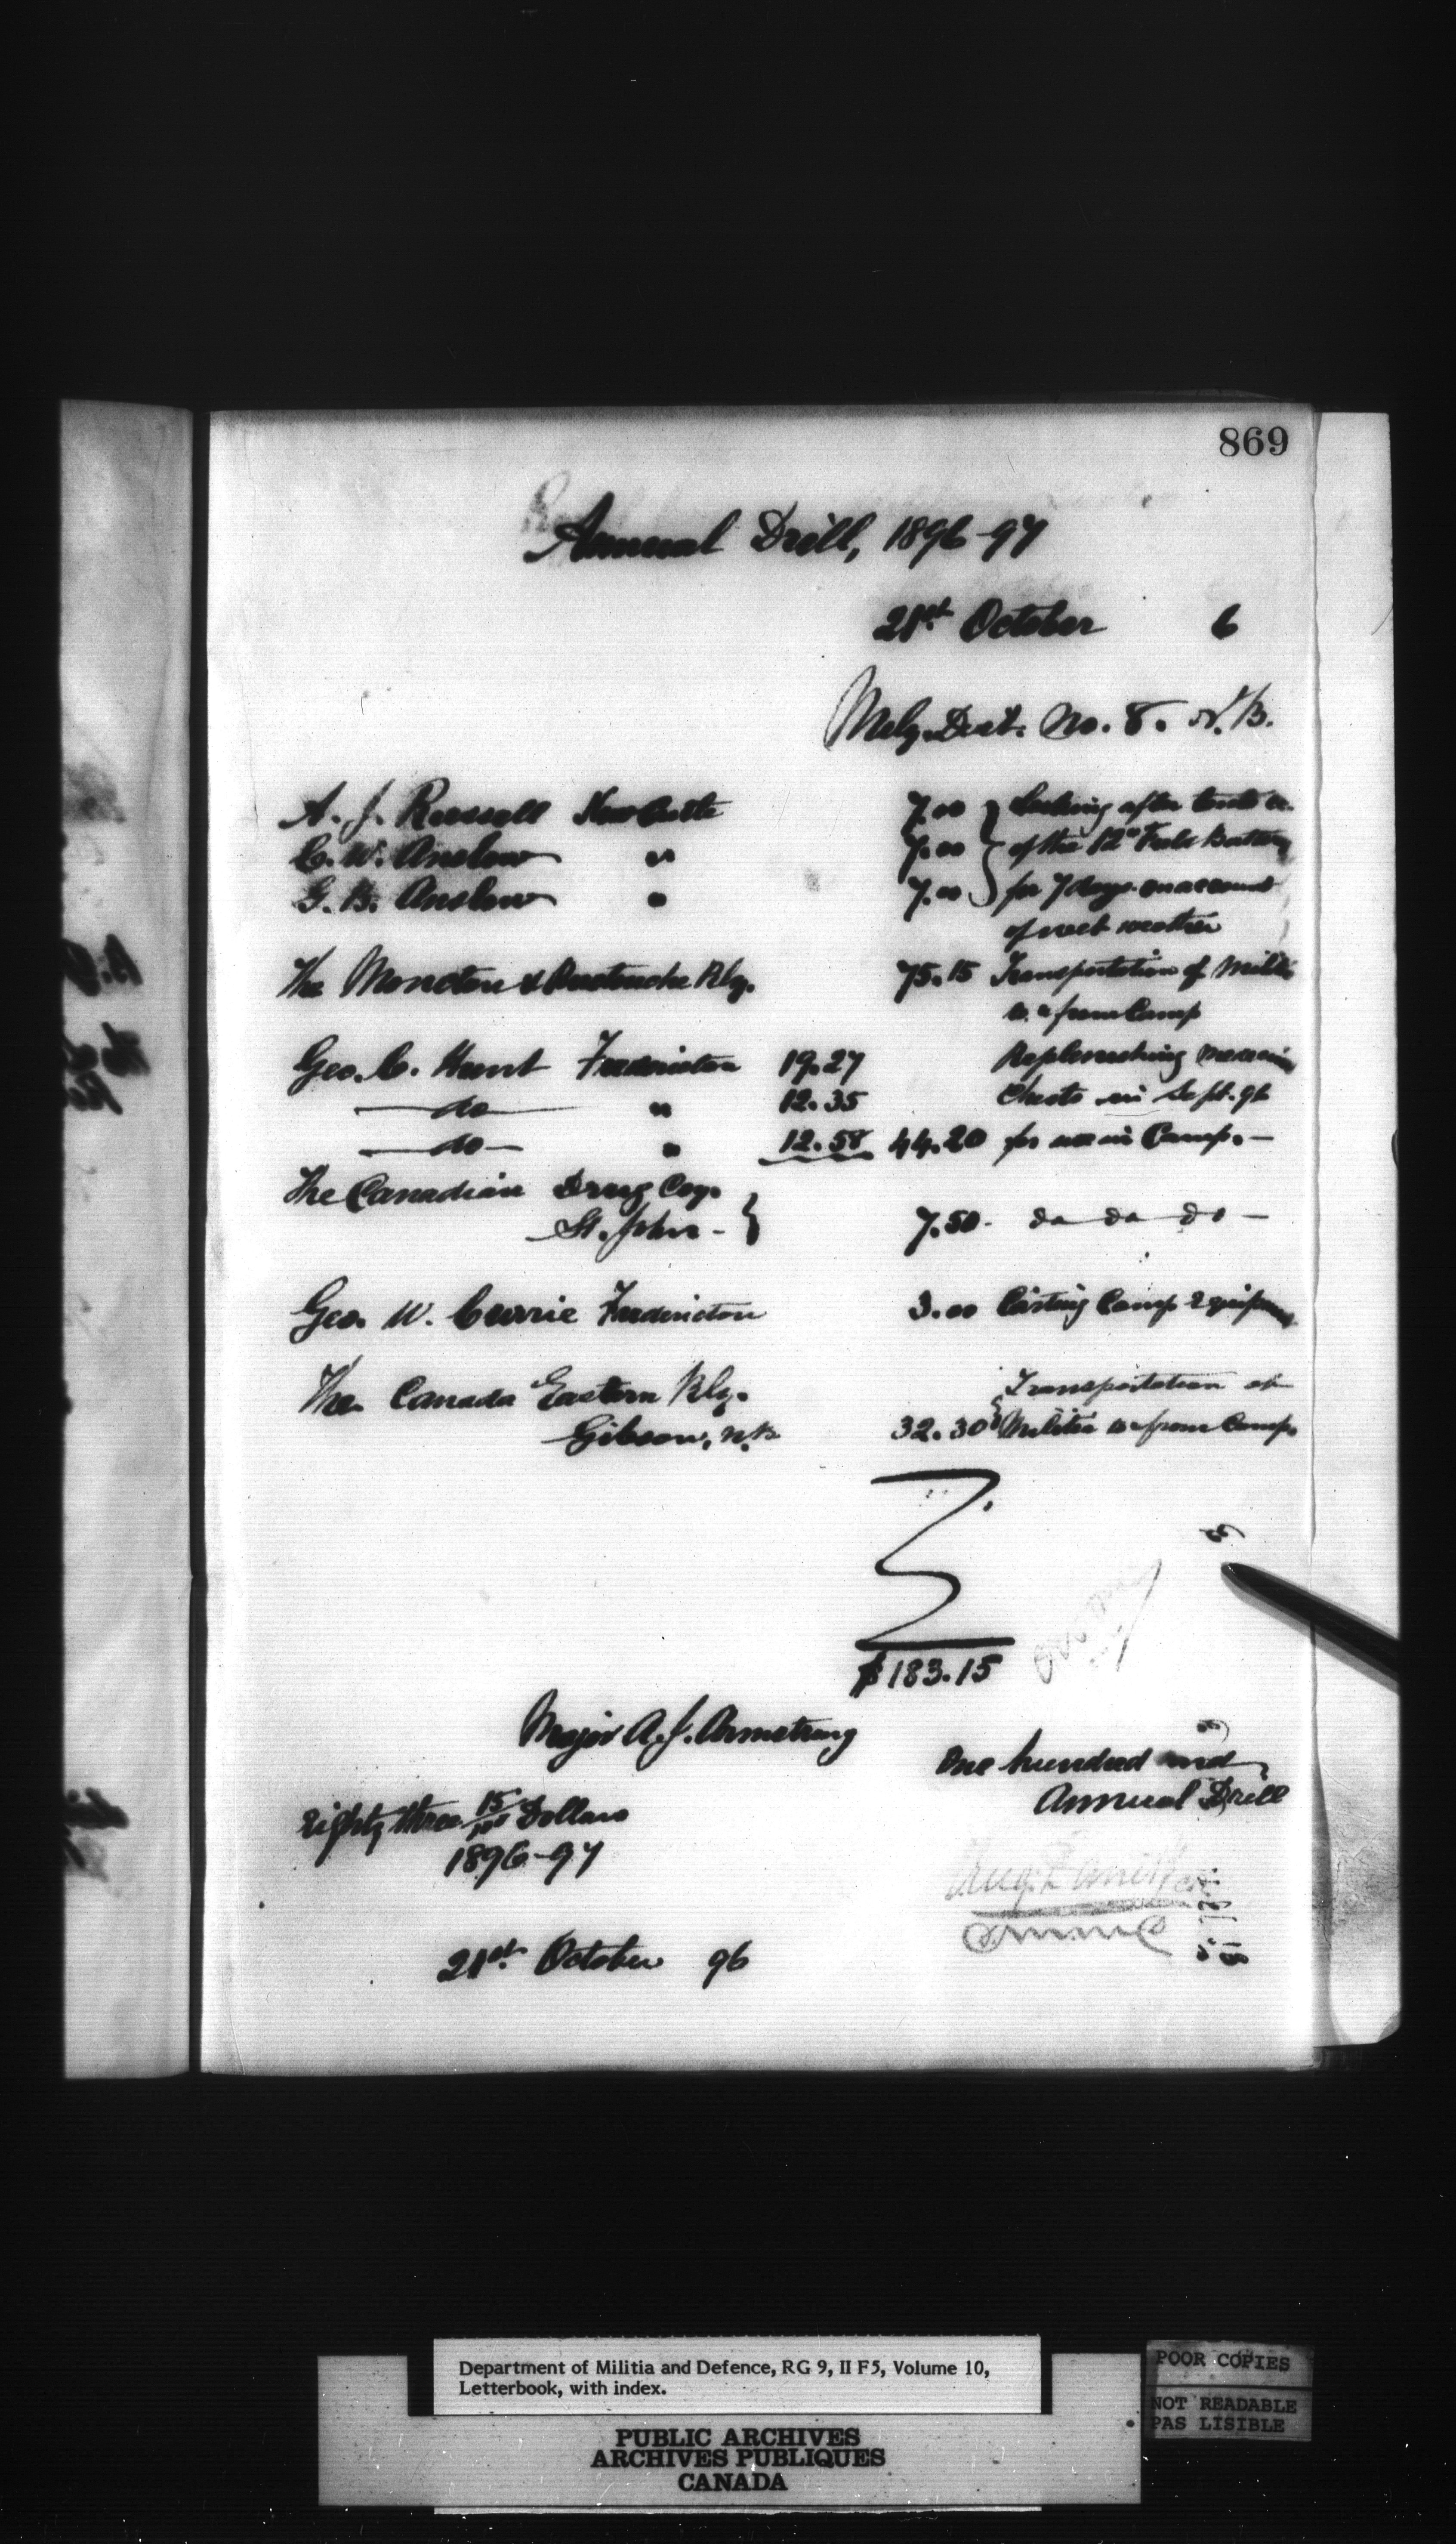 869
Annual Drill, 1896-97
21st October 6
Mily. Dist. No. 8. N.B.
A. J. Russell Newcastle 7.00 } Looking after tents &c.
C. W. Anslow " 7.00 } of the 12th Field Battery
G. B. Anslow " 7.00 } for 7 days on account
of wet weather
The Moncton & Buctouche Rly. 75.15 Transportation of Militia
to & from Camp
Geo. C. Hunt Fredericton 19.27 Replenishing medicine
—do— " 12.35 Chests in Sept. 96
—do— " 12.58 44.20 for use in Camp. —
The Canadian Drug Coy.
St. John - } 7.50 - do do do —
Geo. W. Currie Fredericton 3.00 Carting Camp Equipment
The Canada Eastern Rly. Transportation of
Gibson, N.B. 32.30 Militia to & from Camp.
$183.15
Major A. J. Armstrong
One hundred and
Annual Drill
Eighty three 15/100 Dollars
1896-97
21st October 96
Department of Militia and Defence, RG 9, II F5, Volume 10,
Letterbook, with index.
PUBLIC ARCHIVES
ARCHIVES PUBLIQUES
CANADA
POOR COPIES
NOT READABLE
PAS LISIBLE